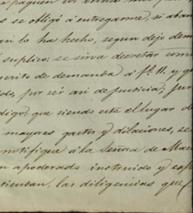 se obligó á entregarme, si
lo ha hecho, segun dejo dem
suplico: se sirva decretar como
escrito de demanda á f. 11. y q
por ser asi de justicia, jur
digo, que siendo este el lugar d
mayores gastos y dilaciones, se
notifique á la Señora de
apoderado instruido y
tiendan, las diligencias que